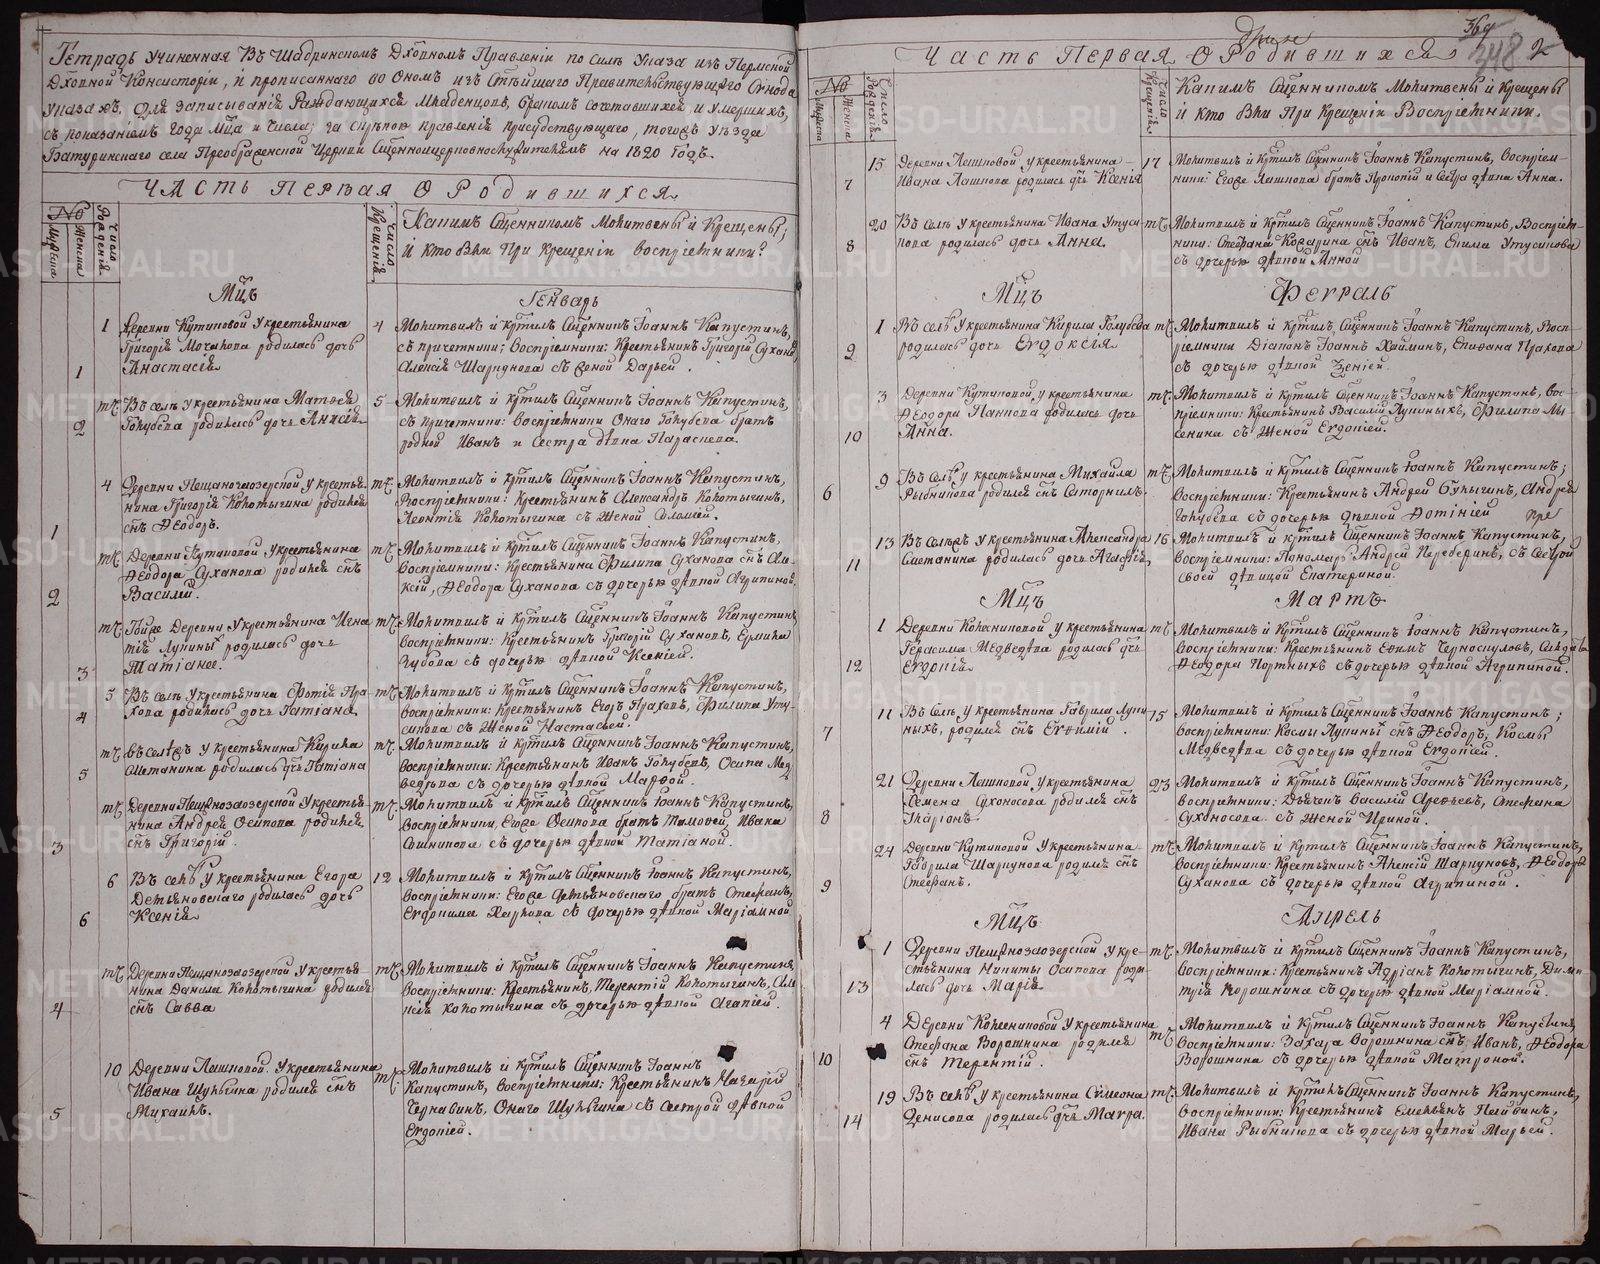 Тетрадь учиненная Въ Шадринскомъ Дховномъ Правленіи по силѣ Указа изъ Пермской
Дховной Консисторіи, и прописаннаго во Ономъ изъ Стѣйшаго Правительствующаго Сѵнода
Указахъ, для записыванія Раждающихся Младенцовъ, бракомъ сочетавшихся, и Умершихъ,
съ показаніемъ года мца и числа; за скрѣпою правленія присудствующаго, тогожъ уѣзда
Батуринскаго села Преображенской Церкви Сщенноцерковнослужителямъ на 1820 Годъ.
ЧАСТЬ ПЕРВАЯ О Родившихся
№
Мужеска
Женска
Число Рожденія
Число Крещенія
Какимъ Сщенникомъ Молитвены и Крещены;
и кто были При Крещеніи воспріемники?
Мцъ Генварь
1 1 Деревни Кутиковой у крестьянина
Григорія родилась дочь
Анастасія
4 Молитвилъ и крстилъ Сщенникъ Іоаннъ Капустинъ,
съ причетники; воспріемники: Крестьянинъ Григорій Сухановъ,
Алексія Шаркунова съ женой Дарьей.
2 тж. Въ селѣ у крестьянина Матвея
Голубева родилась дочь Анисія
5 Молитвилъ и крстилъ Сщенникъ Іоаннъ Капустинъ,
съ причетники: воспріемники Онаго Голубева братъ
родной Иванъ и Сестра двка Параскева.
1 4 Деревни Пещаноозерской у крестья-
нина Григорія Колотыгина родился
снъ Ѳеодоръ.
тж. Молитвилъ и крстилъ Сщенникъ Іоаннъ Капустинъ,
Воспріемники: Крестьянинъ Александръ Колотыгинъ,
Леонтія Колотыгина съ женой
2 тж. Деревни Кутиковой у крестьянина
Ѳеодора Суханова родился снъ
Василій.
тж. Молитвилъ и крстилъ Сщенникъ Іоаннъ Капустинъ,
Воспріемники: Крестьянина Филипа Суханова снъ Але-
ксій, Ѳеодора Суханова съ дочерью двкой Агрипиной.
3 тж. Тойже Деревни у крестьянина Игна-
тія Лукины родилась дочь
Татіана.
тж. Молитвилъ и крстилъ Сщенникъ Іоаннъ Капустинъ
воспріемники: Крестьянинъ Григорій Сухановъ, Ермила
Зубова съ дочерью двкой Ксеніей.
4 5 Въ селѣ у крестьянина Фотій Пра-
хова родилась дочь Татіана
тж. Молитвилъ и крстилъ Сщенникъ Іоаннъ Капустинъ,
воспріемники: Крестьянинъ Егоръ Праховъ, Филипа Уту-
сикова съ женой Настасьей.
5 тж. въ селѣ у крестьянина Кирила
Сметанина родилась дчь Татіана
тж. Молитвилъ и крстилъ Сщенникъ Іоаннъ Капустинъ,
воспріемники: Крестьянинъ Иванъ Голубевъ, Осипа Мед-
ведева съ дочерью двкой Марѳой.
3 тж. Деревни Пещаноозерской у крестья-
нина Андрея Осипова родился
снъ Григорій.
тж. Молитвилъ и крстилъ Сщенникъ Іоаннъ Капустинъ,
воспріемники, Егора Осипова братъ Тимоѳей, Ивана
съ дочерью двкой Татіаной.
6 6 Въ селѣ у крестьянина Егора
Детьяновскаго родилась дочь
Ксенія
12 Молитвилъ и крстилъ Сщенникъ Іоаннъ Капустинъ,
воспріемники: Егора Детьяновскаго братъ Стефанъ,
съ дочерью двкой Маріамной
4 тж. Деревни Пещаноозерской у крестья-
нина Данила Колотыгина родился
снъ Савва
тж. Молитвилъ и крстилъ Сщенникъ Іоаннъ Капустинъ
воспріемники: Крестьянинъ Терентій Колотыгинъ, Але-
ксія Колотыгина съ дочерью двкой Агапіей.
5 10 Деревни Лашковой у крестьянина
Ивана Шулыгина родился снъ
Михаилъ.
тж. Молитвилъ и крстилъ Сщенникъ Іоаннъ
Капустинъ, воспріемники: Крестьянинъ Назарій
Чернавинъ, Онаго Шулыгина съ сестрой двкой
Евдокіей.
369
348
2
ЧАСТЬ ПЕРВАЯ О Родившихся
№
Мужеска
Женска
Число Рожденія
Число Крещенія
Какимъ Сщенникомъ Молитвены и Крещены
и кто были При Крещеніи Воспріемники.
7 15 Деревни Лашковой у крестьянина
Ивана Лашкова родилась дчь Ксенія
17 Молитвилъ и крстилъ Сщенникъ Іоаннъ Капустинъ, воспріем-
ники: Егора Лашкова братъ Прокопій и Сестра двка Анна.
8 20 Въ Селѣ у крестьянина Ивана Утуси-
кова родилась дочь Анна.
тж. Молитвилъ и крстилъ Сщенникъ Іоаннъ Капустинъ, Воспріем-
ники: Стефана снъ Иванъ, Екима Утусикова
съ дочерью двкой Анной
Мцъ Февраль
9 1 Въ селѣ у крестьянина Кирила Голубева
родилась дочь Евдоксія
тж. Молитвилъ и крстилъ Сщенникъ Іоаннъ Капустинъ, Восп-
ріемники Діаконъ Іоаннъ Хайминъ, Епифана Прахова
съ дочерью двкой Зеніей.
10 3 Деревни Кутиковой, у крестьянина
Ѳеодора Панкова родилась дочь
Анна.
тж. Молитвилъ и крстилъ Сщенникъ Іоаннъ Капустинъ, вос-
пріемники: Крестьянинъ Василій Лукиныхъ, Филипа Мы-
сенина съ женой Евдокіей.
6 9 Въ Селѣ у крестьянина Михайла
Рыбникова родился снъ Саторнилъ.
тж. Молитвилъ и крстилъ Сщенникъ Іоаннъ Капустинъ;
воспріемники: Крестьянинъ Андрей Булыгинъ, Андрея
Голубева съ дочерью двкой Фотиніей
11 13 Въ Селѣ у крестьянина Александра
Сметанина родилась дочь Агафія.
16 Молитвилъ и крстилъ Сщенникъ Іоаннъ Капустинъ,
воспріемники: Пономарь Андрей Переберинъ, съ Сестрой
своей двицой Екатериной.
Мцъ Мартъ
12 1 Деревни Колесниковой у крестьянина
Герасима Медведева родилась дчь
Евдокія
тж. Молитвилъ и крстилъ Сщенникъ Іоаннъ Капустинъ,
воспріемники: Крестьянинъ Ефимъ Черноскуловъ,
Ѳеодора Портныхъ съ дочерью двкой Агрипиной.
7 11 Въ Селѣ у крестьянина Гаврила Луки-
ныхъ, родился снъ Евфимій.
15 Молитвилъ и крстилъ Сщенникъ Іоаннъ Капустинъ;
воспріемники: Космы Лукины снъ Ѳеодоръ, Космы
Медведева съ дочерью двкой Евдокіей.
8 21 Деревни Лашковой, у крестьянина
Семена Сухоносова родился снъ
Иларіонъ.
23 Молитвилъ и крстилъ Сщенникъ Іоаннъ Капустинъ,
воспріемники: Дьячекъ Василій Арефьевъ, Стефана
Сухоносова съ женой Ириной.
9 24 Деревни Кутиковой у крестьянина
Гаврила Шаркунова родился снъ
Стефанъ.
тж. Молитвилъ и крстилъ Сщенникъ Іоаннъ Капустинъ,
воспріемники: Крестьянинъ Алексій Шаркуновъ, Ѳеодора
Суханова съ дочерью двкой Агрипиной.
Мцъ Апрель
13 1 Деревни Пещаноозерской у кре-
стьянина Никиты Осипова роди-
лась дочь Марія
тж. Молитвилъ и крстилъ Сщенникъ Іоаннъ Капустинъ,
воспріемники: Крестьянинъ Адріанъ Колотыгинъ, Дими-
трія Ворошнина съ дочерью двкой Маріамной.
10 4 Деревни Колесниковой у крестьянина
Стефана Ворошнина родился
снъ Терентій.
тж. Молитвилъ и крстилъ Сщенникъ Іоаннъ Капустинъ,
воспріемники: Захара Ворошнина снъ Иванъ, Ѳеодора
Ворошнина съ дочерью двкой Матроной.
14 19 Въ Селѣ у крестьянина Сѵмеона
Денисова родилась дчь Мавра.
тж. Молитвилъ и крстилъ Сщенникъ Іоаннъ Капустинъ,
воспріемники: Крестьянинъ Емельянъ Пайвинъ,
Ивана Рыбникова съ дочерью двкой Марьей.
METRIKI.GASO-URAL.RU